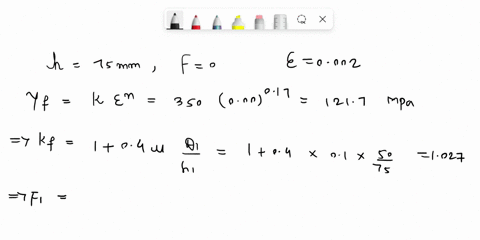 h = 75mm , F = 0 ε = 0.002
Yf = K εⁿ = 350 (0.00)^0.17 = 121.7 mpa
=> Kf = 1 + 0.4 μ D1/h1 = 1 + 0.4 × 0.1 × 50/75 = 1.027
=> F1 =